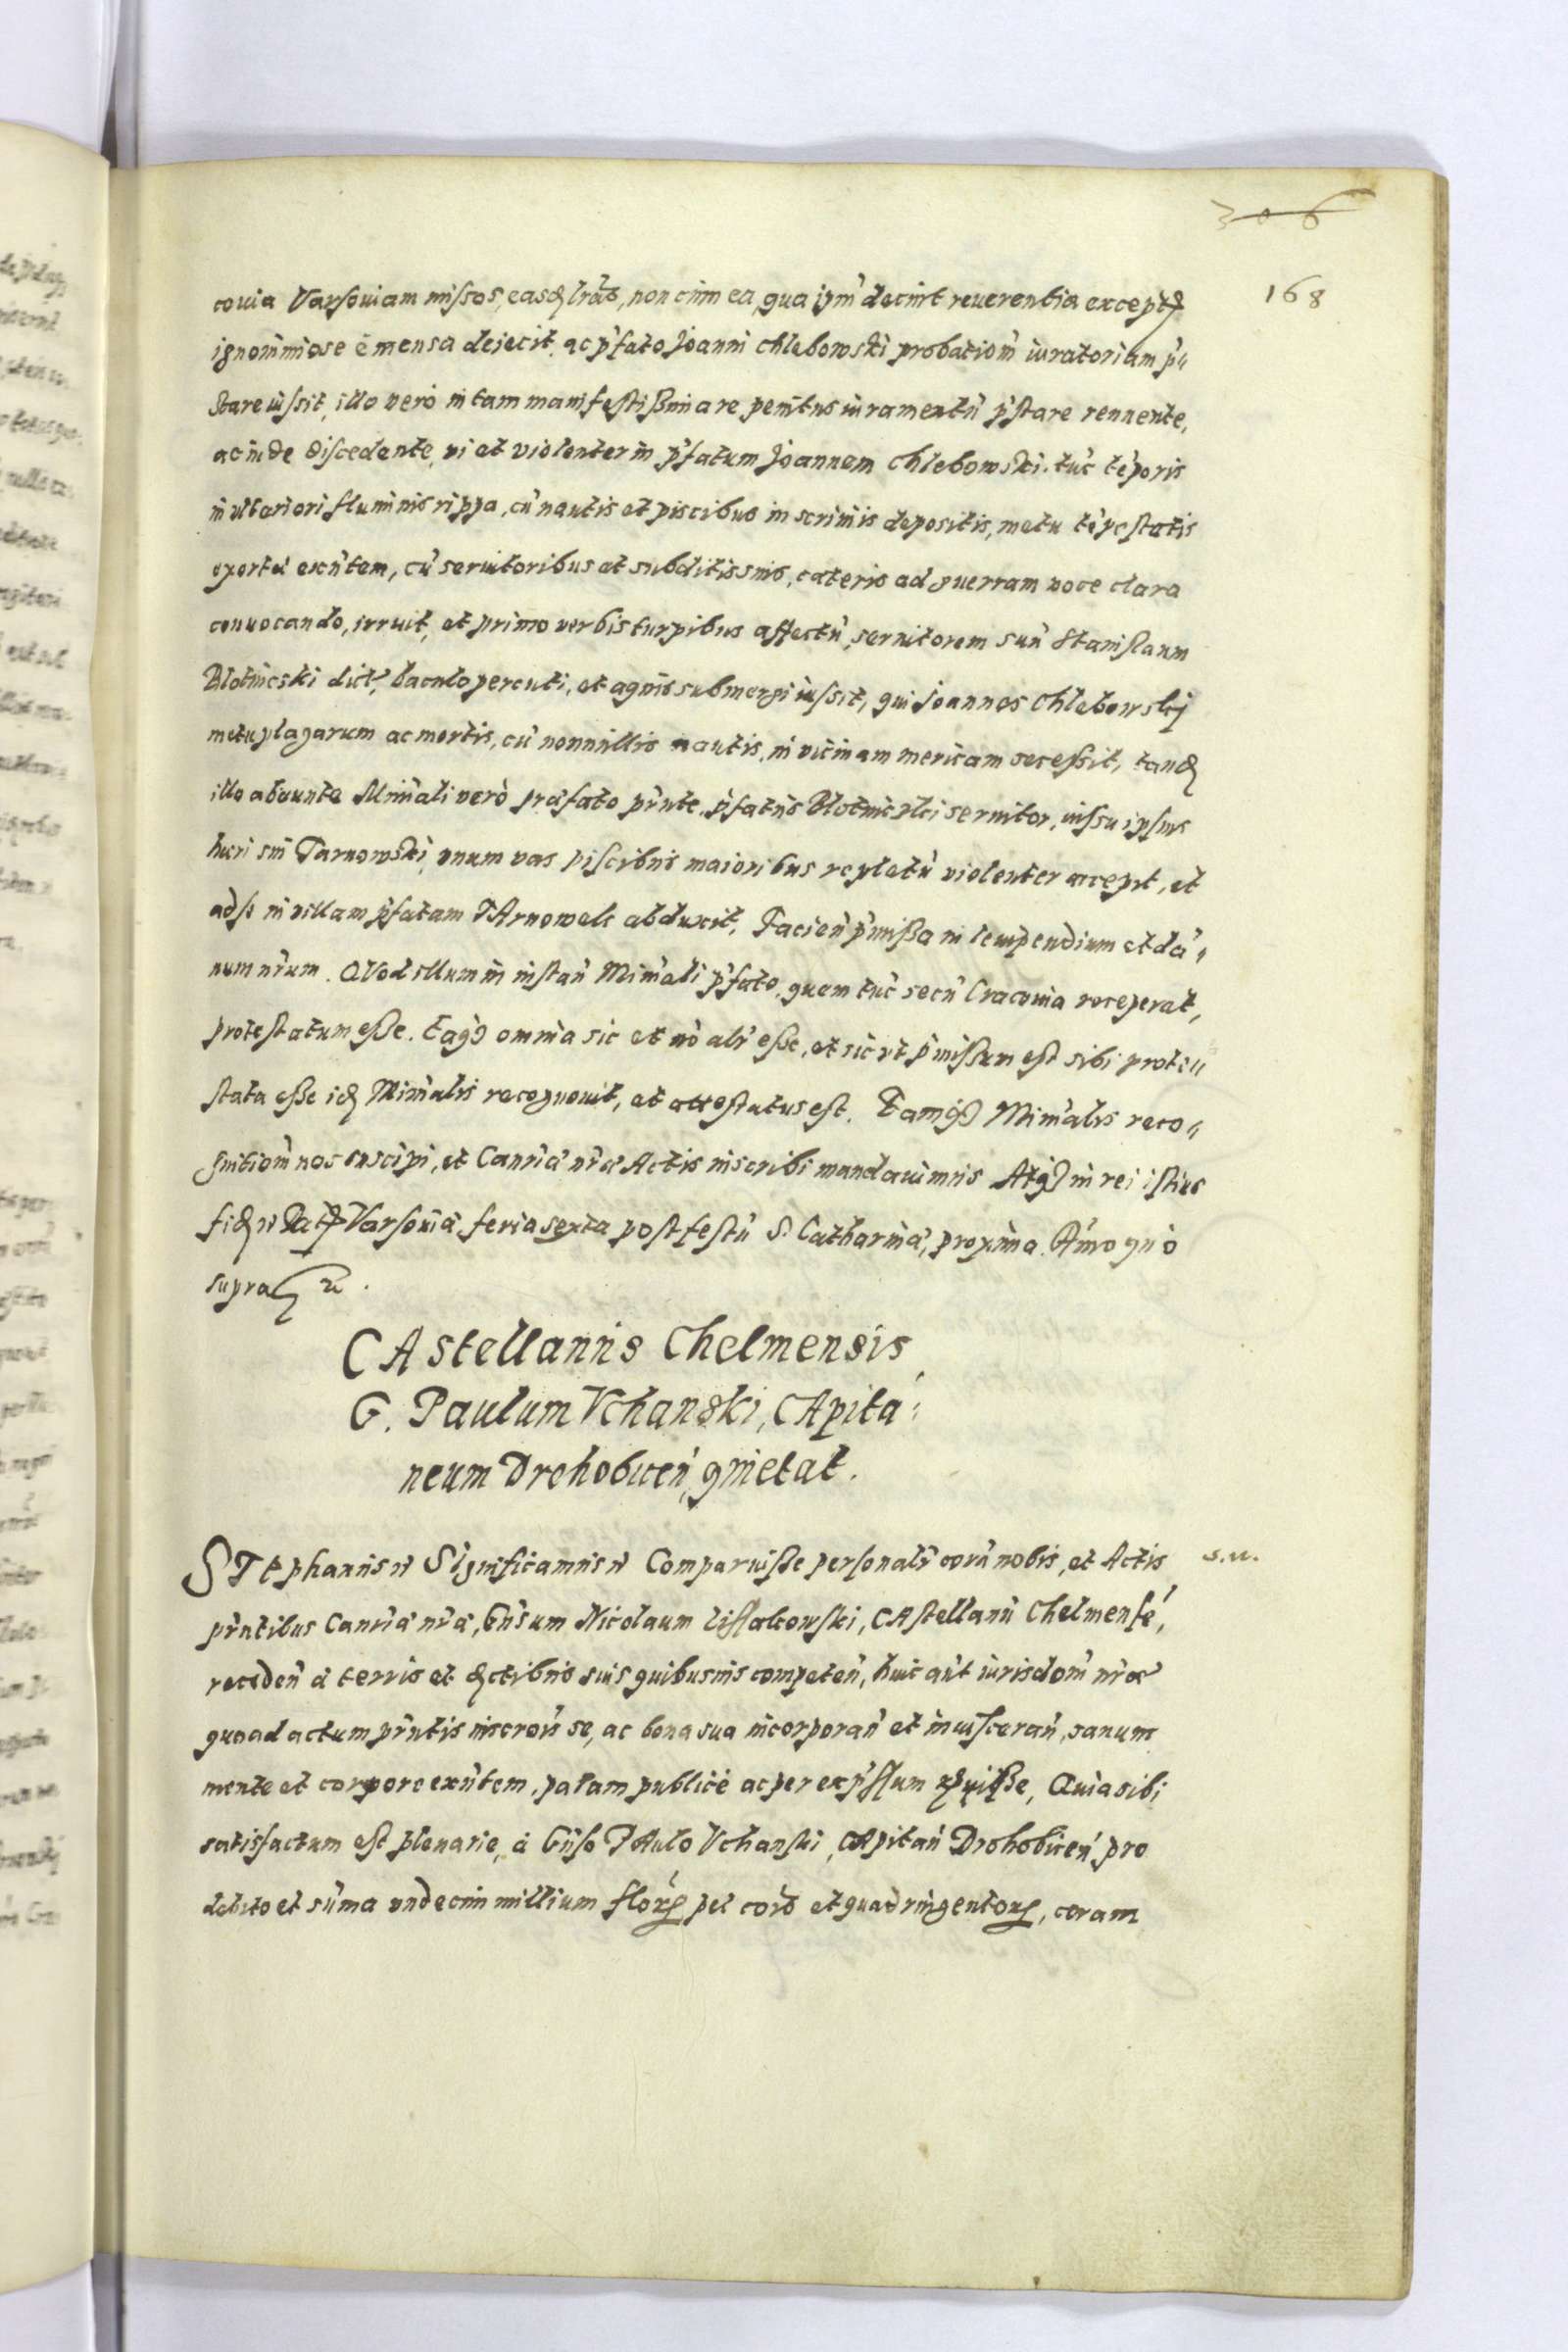 306
168
couia Varsouiam missos, easq lrãs, non cum ea, qua ipm̃ decuit reuerentia except
ignominiose è mensa deiecit, ac p̃fato Joanni Chlebowski probatiom̃ iuratoriam p̃„
stare iussit, illo verò in tam manifestissima re penitus iuramentũ p̃stare rennente,
ac inde discedente, vi et violenter in p̃fatum Joannem Chlebowski tũc tẽporis
in vlteriori fluminis rippa, cũ nautis et piscibus in scriniis depositis, metu tẽpestatis
exortæ exñtem, cũ seruitoribus et subditis suis, cæteris ad guerram voce clara
conuocando, irruit, et primo verbis turpibus affectũ, seruitorem suũ Stanislaum
Blotnicski dict, baculo percuti, et aquis submergi iussit, qui Joannes Chlebowskj
metu plagarum ac mortis, cũ nonnullis nautis, in vicinam mericam secessit, tandq
illo abeunte Minĩali verò præfato pñte, p̃fatus Blotniczki seruitor, iussu ipsius
heri sui Tarnowski, vnum vas piscibus maioribus repletũ violenter accepit, et
ad se in villam p̃fatam TArnowek abduxit, Facien̄ p̃missa in leuipendium et dã„
num nrũm. QVod illum in instañ Minĩali p̃fato, quem tũc secũ Cracouia receperat,
protestatum esse. Eaqȝ omnia sic et nõ alr̃ esse, et sicut p̃missum est sibi prote„
stata esse idq Minĩalis recognouit, et attestatus est. Eamqȝ Minĩalis reco„
gnitiom̃ nos suscipi, et Canriæ nr̃æ Actis inscribi mandauimus Atqȝ in rei istius
fidq Dat Varsouiæ feria sexta post festũ S. Catharinæ, proxima. Anno quò
supra
CAstellanus Chelmensis,
G. Paulum Vchanski, CApita„
neum Drohobicen̄, quietat.
STephanus Significamus Comparuisse personalr̃ corã nobis, et Actis
s.u.
pñtibus Canriæ nr̃æ, Gñsum Nicolaum Lissakowski, CAstellanũ Chelmensẽ,
recedeñ à terris et ctibus suis quibusuis competeñ, huic aũt iurisdom̃ nr̃æ
quoad actum pñtis inscrois se, ac bona sua incorporañ et inuisceran̄, sanum
mente et corpore exñtem, palam publicè ac per exp̃ssum, Quia sibi
satisfactum est plenarie, à Gñso PAulo Vchanski, CApitañ Drohobicen̄ pro
debito et sũma vndecim millium florȝ pec coiõ et quadringentorȝ, coram